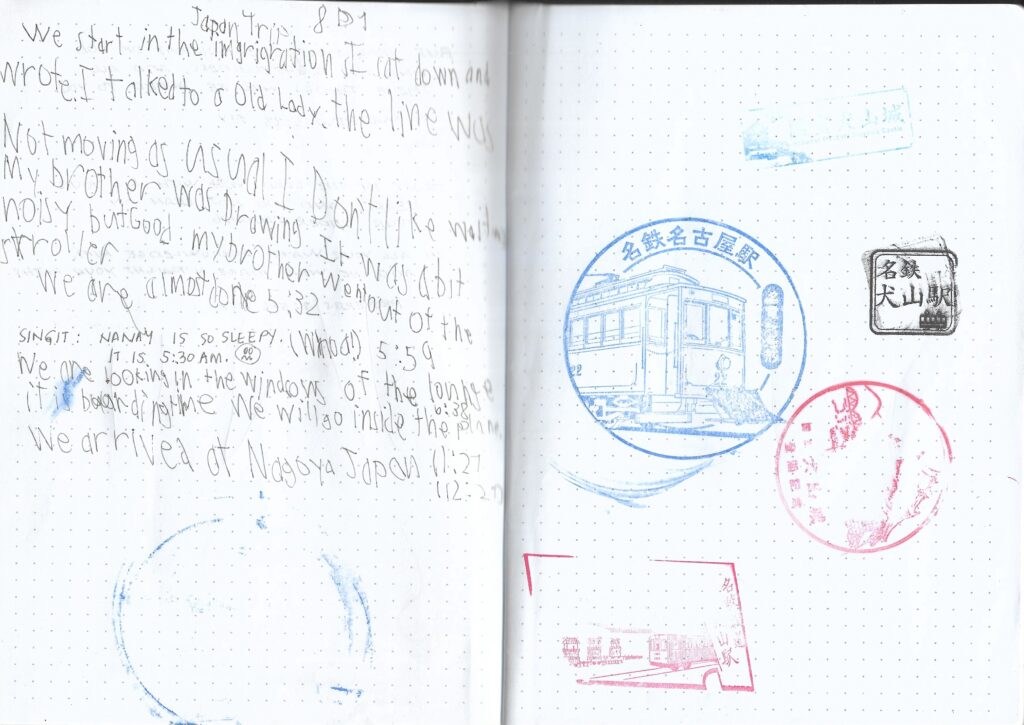 Japan Trip 8 D1
We start in the imgrigration I sat down and
wrote. I talked to a old Lady. the line was
Not moving as usual I Don't like
My brother was Drawing. It was a bit
noisy but Good. my brother went out of the
strroller
We are almost done 5,32
SINGIT: NANAY IS SO SLEEPY. (Whoa!) 5:59
IT IS 5:30 AM.
We are looking in the windows of the lounge
it is boarding time We will go inside the 6:38
We arrived at Nagoya Japan 11:27
名鉄名古屋駅
名鉄
犬山駅
犬山城
名鉄
山駅